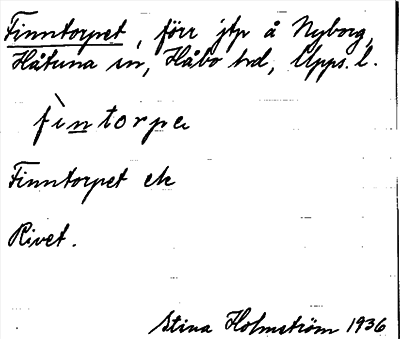 Finntorpet, förr jtp å Nyborg,
Håtuna sn, Håbo hd, Upps. l.
fìntorpe
Finntorpet ek
Rivet.
Stina Holmström 1936